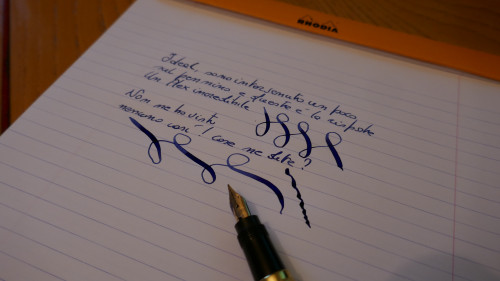 RHODIA
sono intenzionato un poco
nel pennino e questa è la risposta
Un flex incredibile
Non ne ho visti
nemmeno così! cosa ne dite?